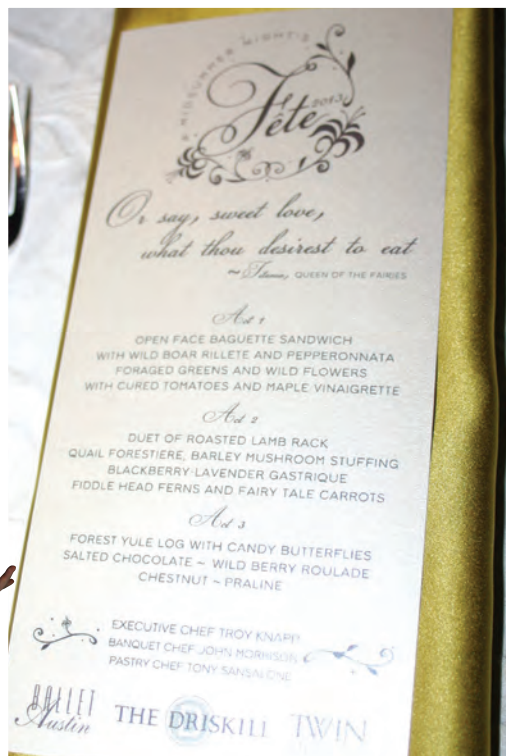 A MIDSUMMER NIGHT'S
Fête 2013
Or say, sweet love,
what thou desirest to eat
~ Titania, QUEEN OF THE FAIRIES
Act 1
OPEN FACE BAGUETTE SANDWICH
WITH WILD BOAR RILLETE AND PEPPERONNATA
FORAGED GREENS AND WILD FLOWERS
WITH CURED TOMATOES AND MAPLE VINAIGRETTE
Act 2
DUET OF ROASTED LAMB RACK
QUAIL FORESTIERE, BARLEY MUSHROOM STUFFING
BLACKBERRY-LAVENDER GASTRIQUE
FIDDLE HEAD FERNS AND FAIRY TALE CARROTS
Act 3
FOREST YULE LOG WITH CANDY BUTTERFLIES
SALTED CHOCOLATE ~ WILD BERRY ROULADE
CHESTNUT ~ PRALINE
EXECUTIVE CHEF TROY KNAPP
BANQUET CHEF JOHN MORRISON
PASTRY CHEF TONY SANSALONE
BALLET Austin THE DRISKILL TWIN